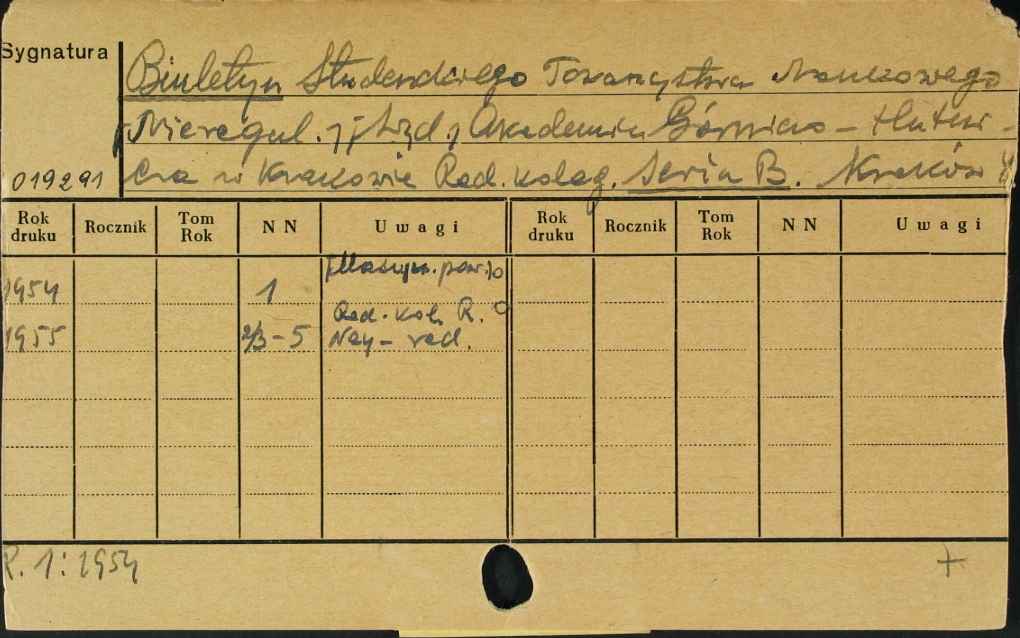 Sygnatura
Biuletyn Studenckiego Towarzystwa Naukowego
[Nieregul.] [Wyd.] Akademia Górniczo-Hutni-
019291 cza w Krakowie Red. koleg. Seria B. Kraków
Rok druku Rocznik Tom Rok NN Uwagi Rok druku Rocznik Tom Rok NN Uwagi
[Maszyn. pow.]
1954 1
Red. kol. R.
1955 2/3-5 Ney-red.
R. 1: 1954 +